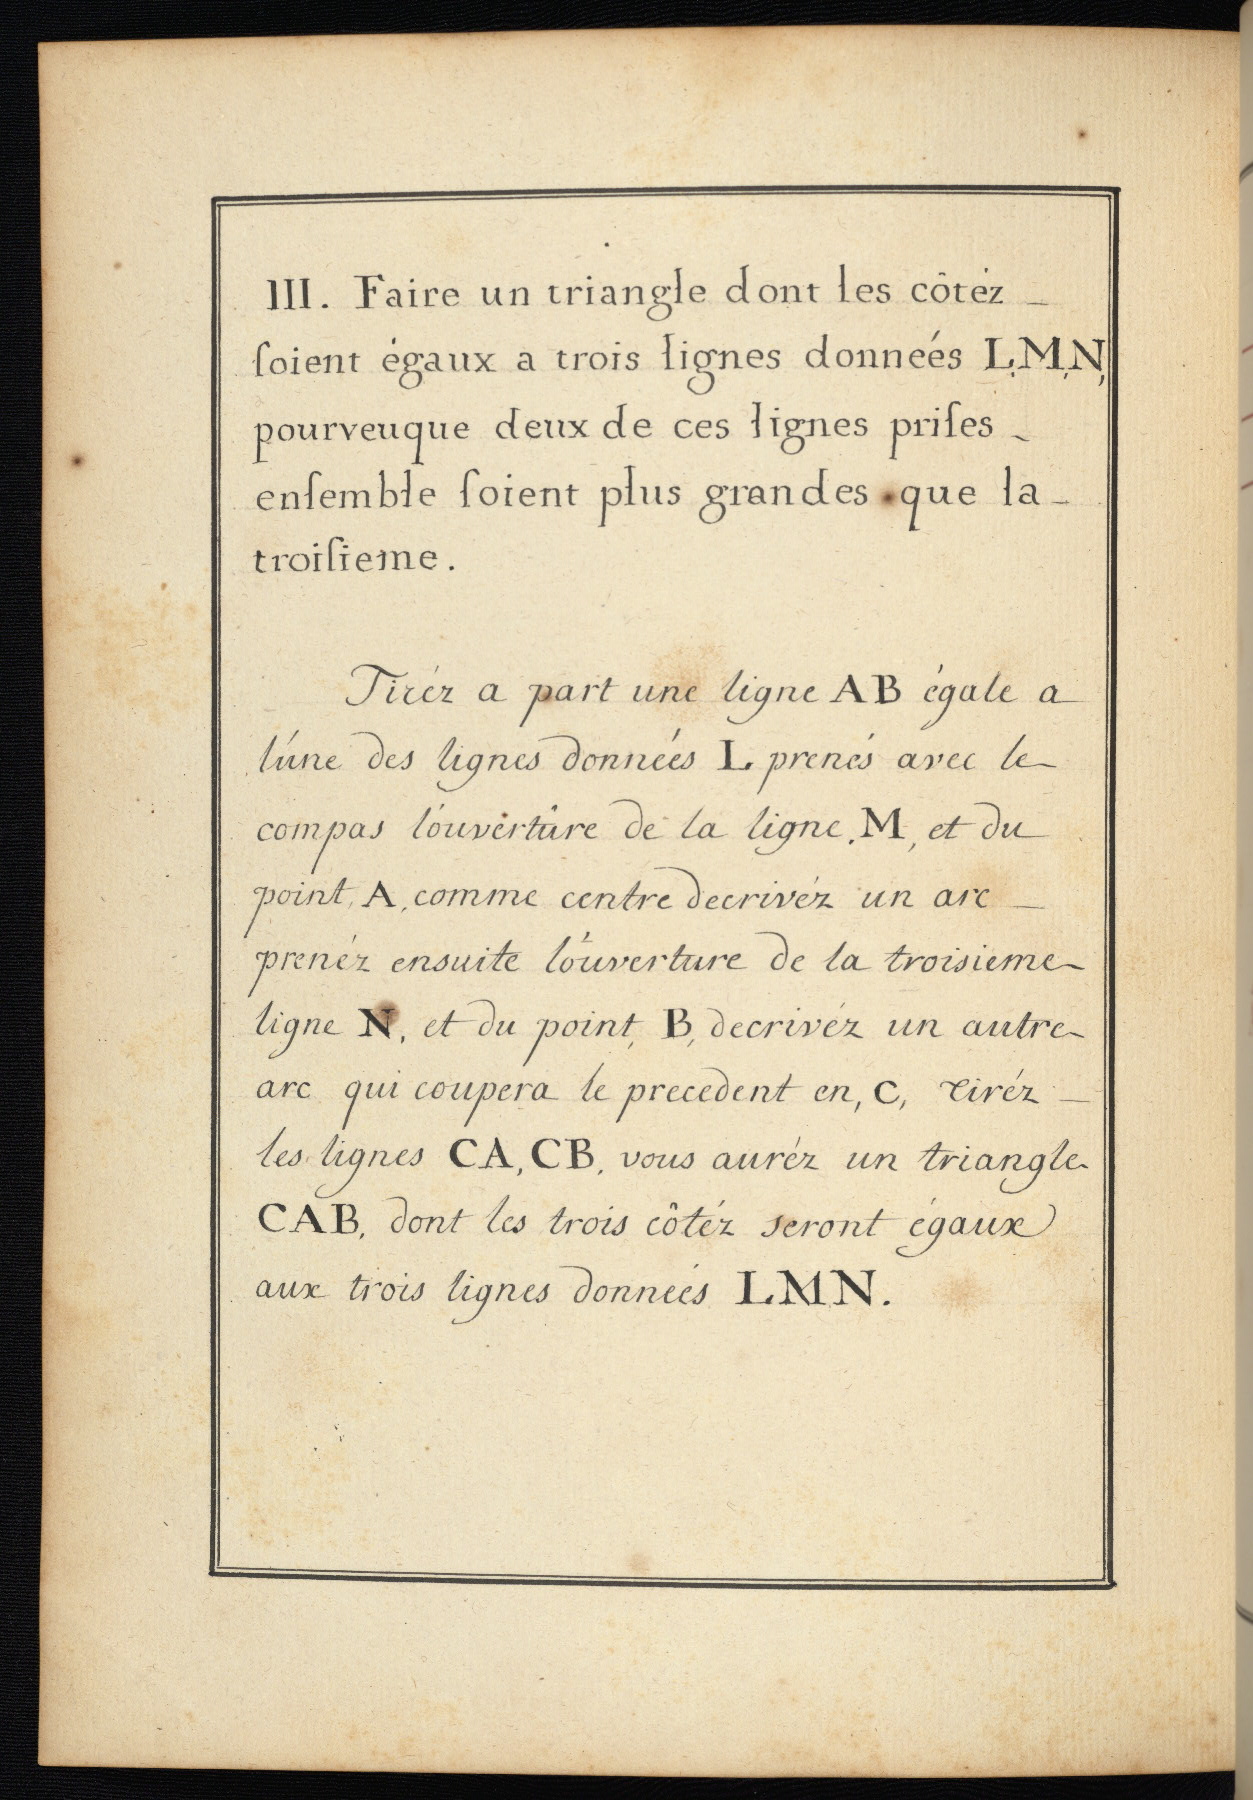 III. Faire un triangle dont les côtéz _
ſoient égaux a trois lignes donneés L,M,N,
pourveuque deux de ces lignes priſes _
enſemble ſoient plus grandes que la _
troiſieme.
Tiréz a part une ligne AB égale a
l'úne des lignes données L prenés avec le
compas l'ouvertûre de la ligne, M, et du
point, A, comme centre decrivéz un arc _
prenéz ensuite l'óuverture de la troisieme
ligne N, et du point, B, decrivéz un autre
arc qui coupera le precedent en, C, tiréz _
les lignes CA, CB, vous auréz un triangle
CAB, dont les trois côtéz seront égaux
aux trois lignes donneés LMN.